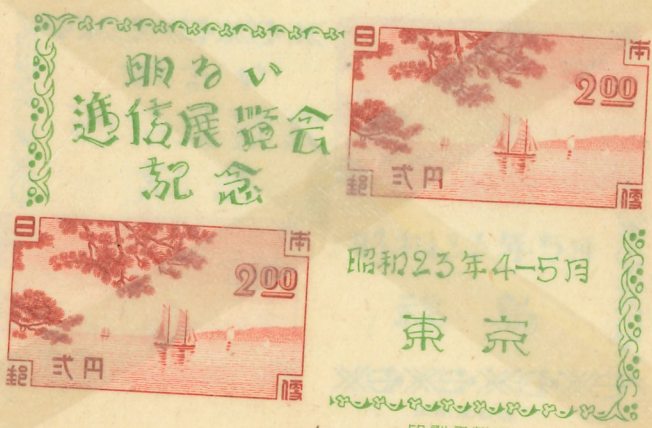 明るい
逓信展覧会
記念
日本
200
弐円
郵便
日本
200
弐円
郵便
昭和23年4-5月
東京